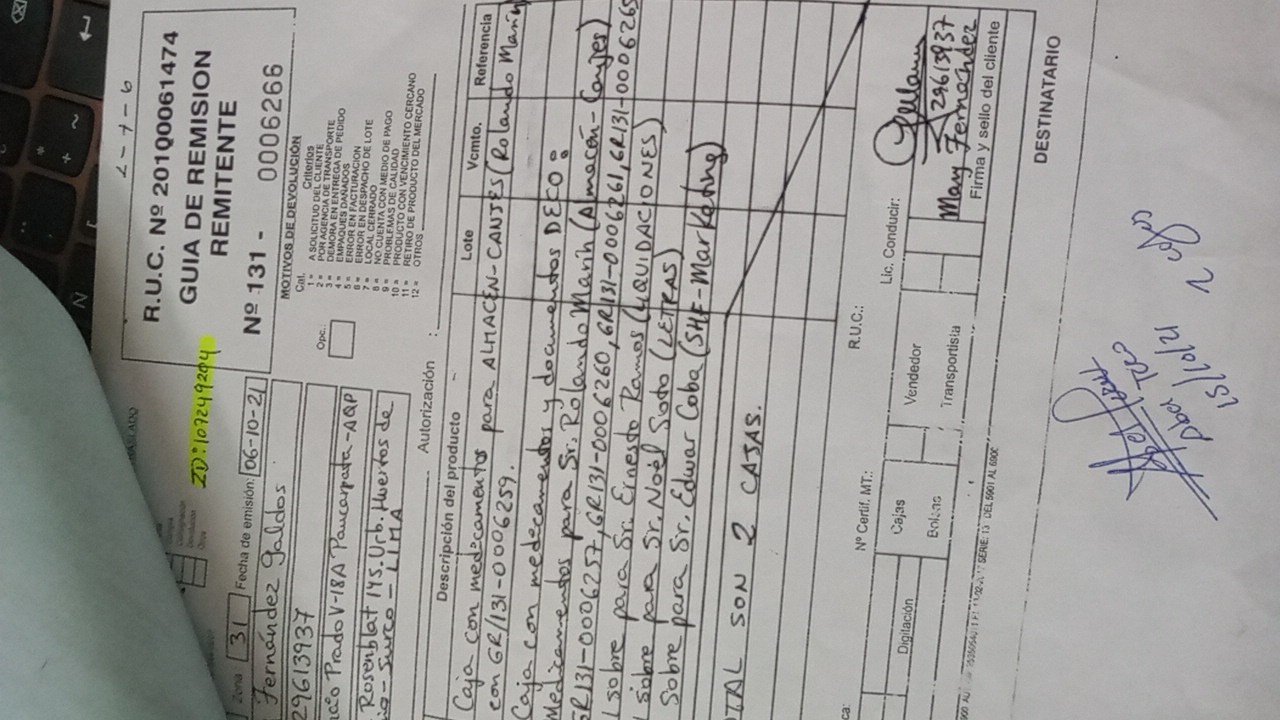 R.U.C. Nº 20100061474
GUIA DE REMISION
REMITENTE
Nº 131 - 0006266
ZD:109249204
MOTIVOS DE DEVOLUCIÓN
Cat. Criterios
1 = A SOLICITUD DEL CLIENTE
2 = POR AGENCIA DE TRANSPORTE
3 = DEMORA EN ENTREGA DE PEDIDO
4 = EMPAQUES DAÑADOS
5 = ERROR EN FACTURACION
6 = ERROR EN DESPACHO DE LOTE
7 = LOCAL CERRADO
8 = NO CUENTA CON MEDIO DE PAGO
9 = PROBLEMAS DE CALIDAD
10 = PRODUCTO CON VENCIMIENTO CERCANO
11 = RETIRO DE PRODUCTO DEL MERCADO
12 = OTROS
Opc.:
Autorización :
Zona 31 Fecha de emisión: 06-10-21
Fernández Galdos
29613937
Prado V-18A Paucarpata-AQP
Rosenblat 145. Urb. Huertos de
Surco - LIMA
Descripción del producto Lote Vcmto. Referencia
Caja con medicamentos para ALMACEN-CANJES (Rolando Marín)
con GR/131-0006259.
Caja con medicamentos y documentos DECO:
Medicamentos para Sr. Rolando Marín (Almacén-Canjes)
GR131-0006257, GR131-0006260, GR131-0006261, GR131-0006265
1 sobre para Sr. Ernesto Ramos (LIQUIDACIONES)
1 sobre para Sr. Noel Soto (LETRAS)
Sobre para Sr. Edwar Coba (SHF-Marketing)
TOTAL SON 2 CAJAS.
R.U.C.:
Nº Certif. MT.: Lic. Conducir:
Digitación Cajas Vendedor
Bolsas Transportista
29613937
Mary Fernández
Firma y sello del cliente
DESTINATARIO